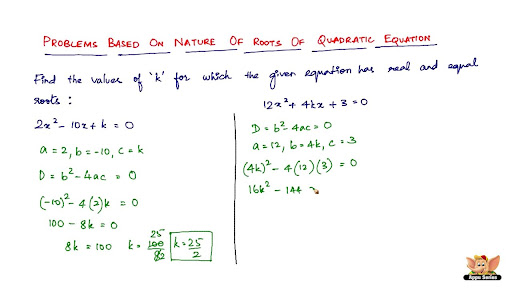 PROBLEMS BASED ON NATURE OF ROOTS OF QUADRATIC EQUATION
Find the values of 'k' for which the given equation has real and equal
roots :
2x² - 10x + k = 0
a = 2, b = -10, c = k
D = b² - 4ac = 0
(-10)² - 4(2)k = 0
100 - 8k = 0
8k = 100 k = 25 100/82 k = 25/2
12x² + 4kx + 3 = 0
D = b² - 4ac = 0
a = 12, b = 4k, c = 3
(4k)² - 4(12)(3) = 0
16k² - 144
Appu Series